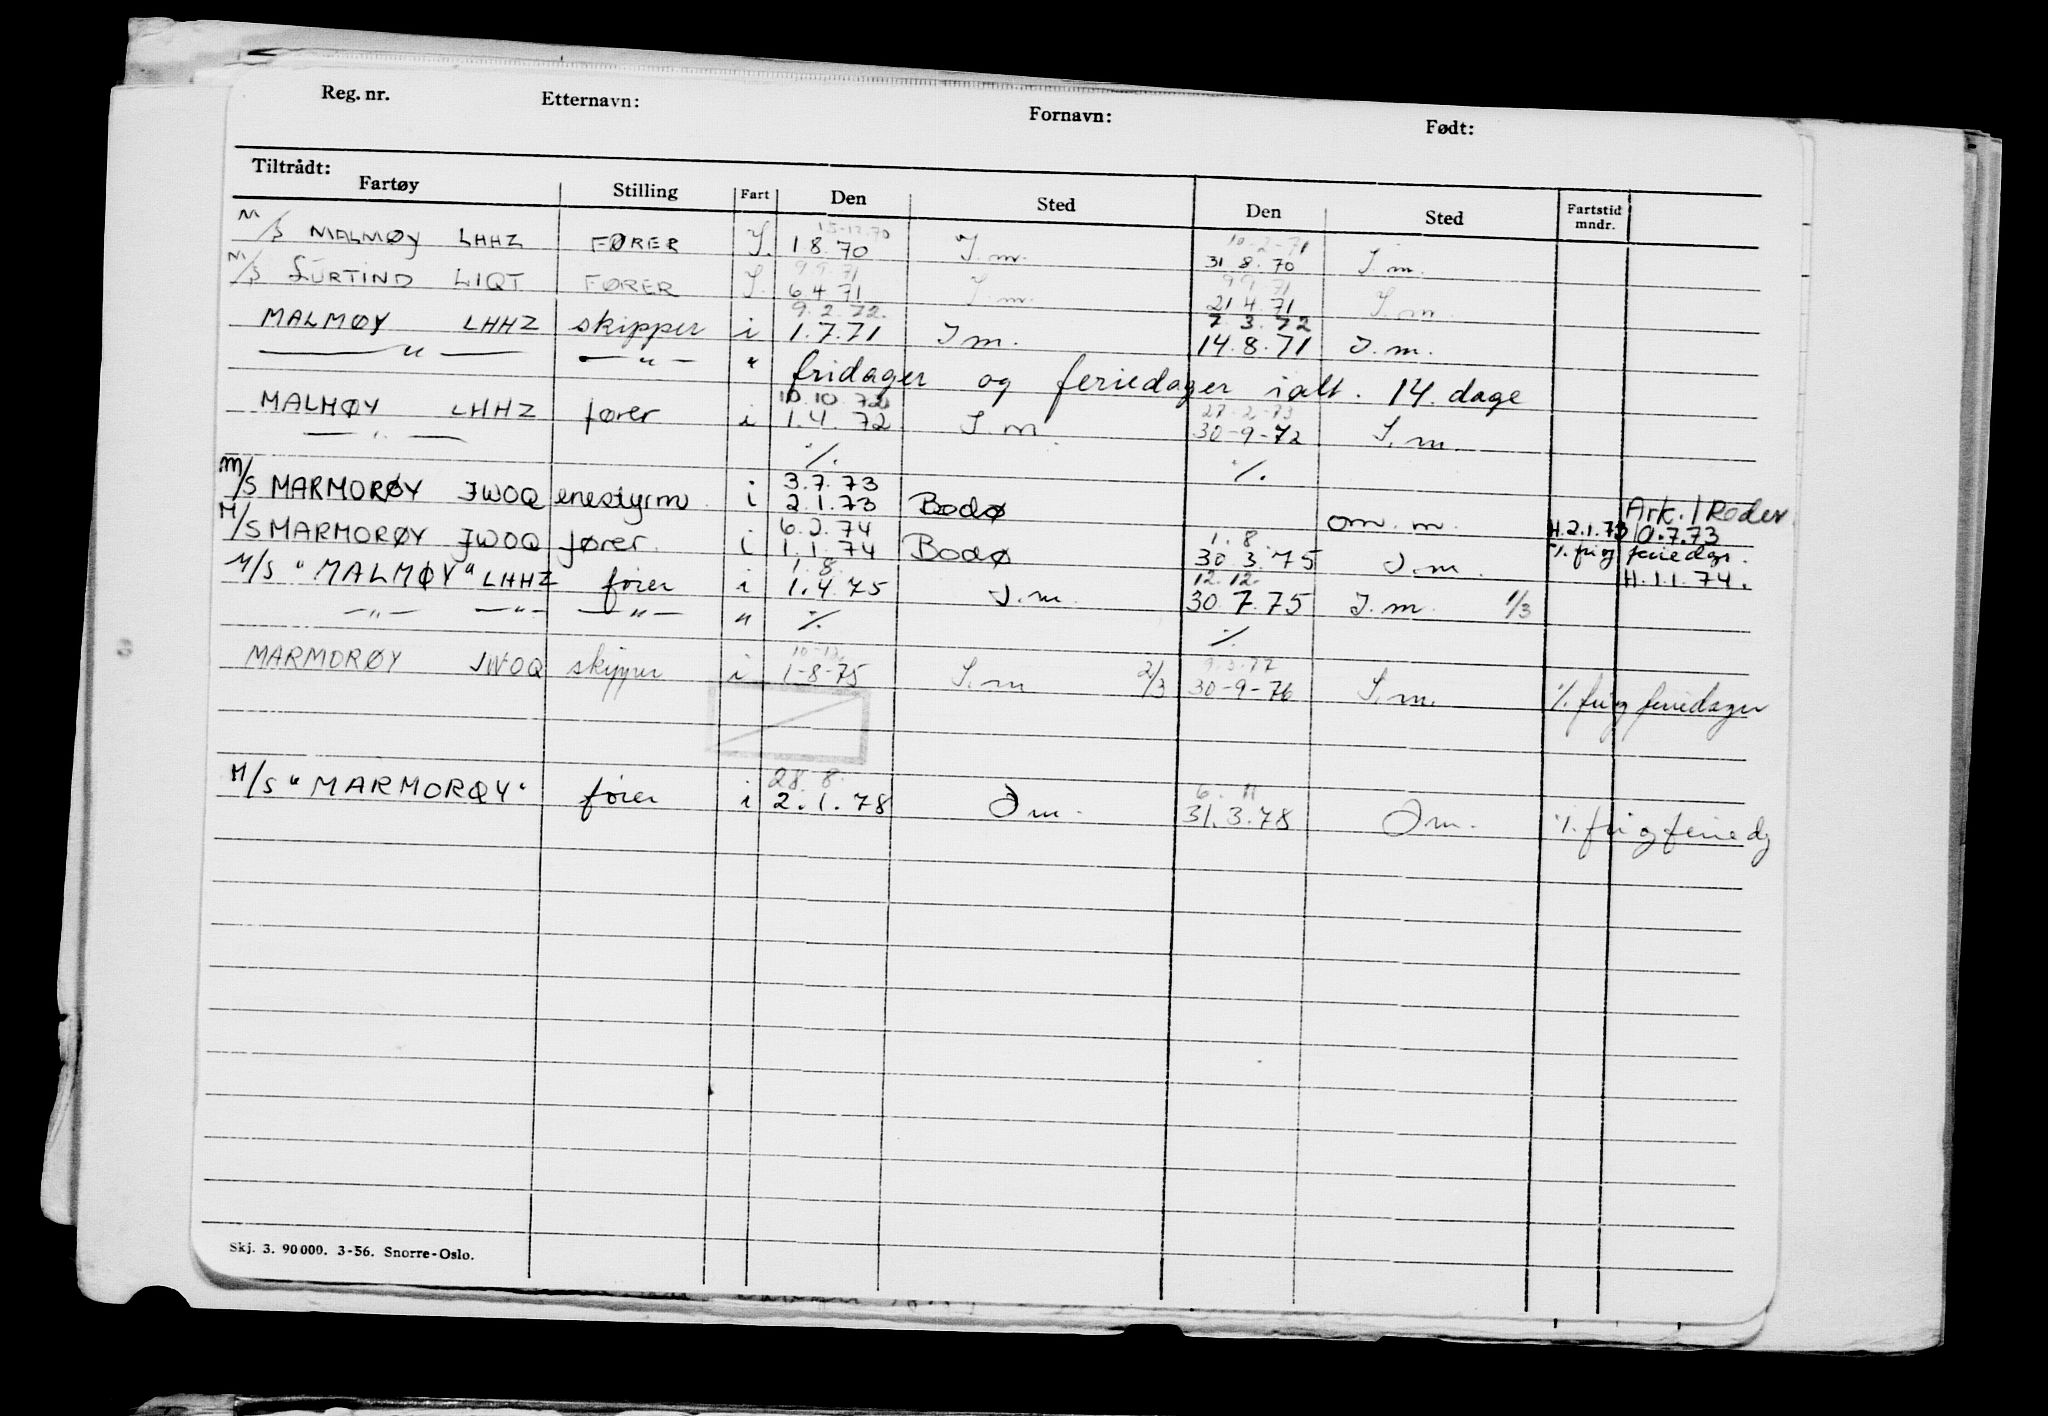 Reg. nr. Etternavn: Fornavn: Født:
Tiltrådt:
Fartøy Stilling Fart Den Sted Den Sted Fartstid mndr.
15-12.70 10-2-71
M/S MALMØY LHHZ FØRER I. 1.8.70 I.m. 31 8.70 I.m.
9.9.71 9.9.71
M/S SURTIND LIQT FØRER I. 6.4.71 I.m. 21.4.71 I.m.
9.2.72. 7.3.72
MALMØY LHHZ skipper i 1.7.71 I m. 14.8.71 I.m.
—"— —"— " fridager og feriedager ialt. 14. dage
10.10.72 27-2-73
MALMØY LHHZ fører i 1.4.72 I.m. 30-9-72 I.m.
—"— ./. ./.
3.7.73 Ark./Reder.
M/S MARMORØY JWOQ enestyrm. i 2.1.73 Bodø om.m. H.2.1.73 0.7.73
6.2.74 1.8.
M/S MARMORØY JWOQ fører. i 1.1.74 Bodø 30.3.75 I.m. ./. fri og feriedgr.
H.1.1.74.
1.8. 12.12.
M/S "MALMØY" LHHZ fører i 1.4.75 I.m. 30.7.75 I.m. 1/3
—"— —"— —"— " ./. ./.
10-12. 9.3.77
MARMORØY JWOQ skipper i 1-8-75 I.m 2/3 30-9-76 I.m. ./. fri og feriedager
28.8. 6.11
M/S "MARMORØY" fører i 2.1.78 Om. 31.3.78 Om. ./. fri og feriedg
Skj. 3. 90000. 3-56. Snorre-Oslo.